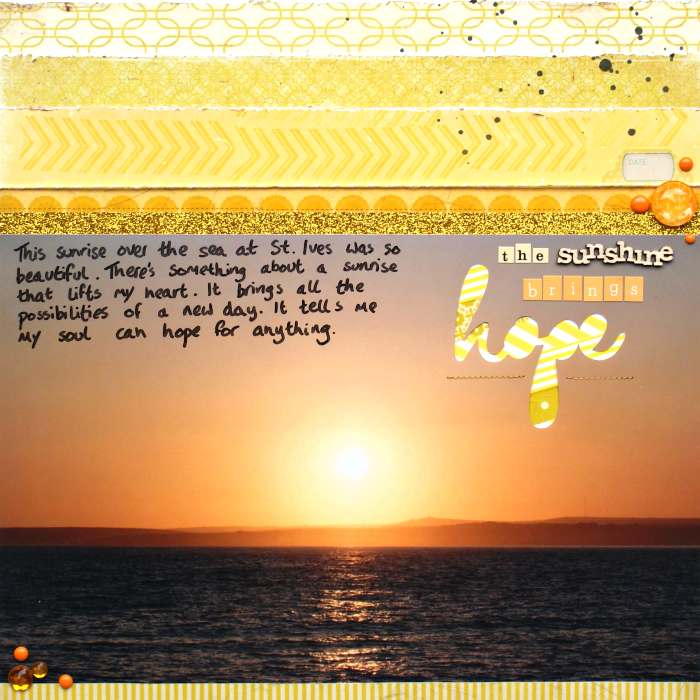 DATE:
This sunrise over the sea at St. Ives was so
beautiful. There's something about a sunrise
that lifts my heart. It brings all the
possibilities of a new day. It tells me
my soul can hope for anything.
the sunshine
brings
hope